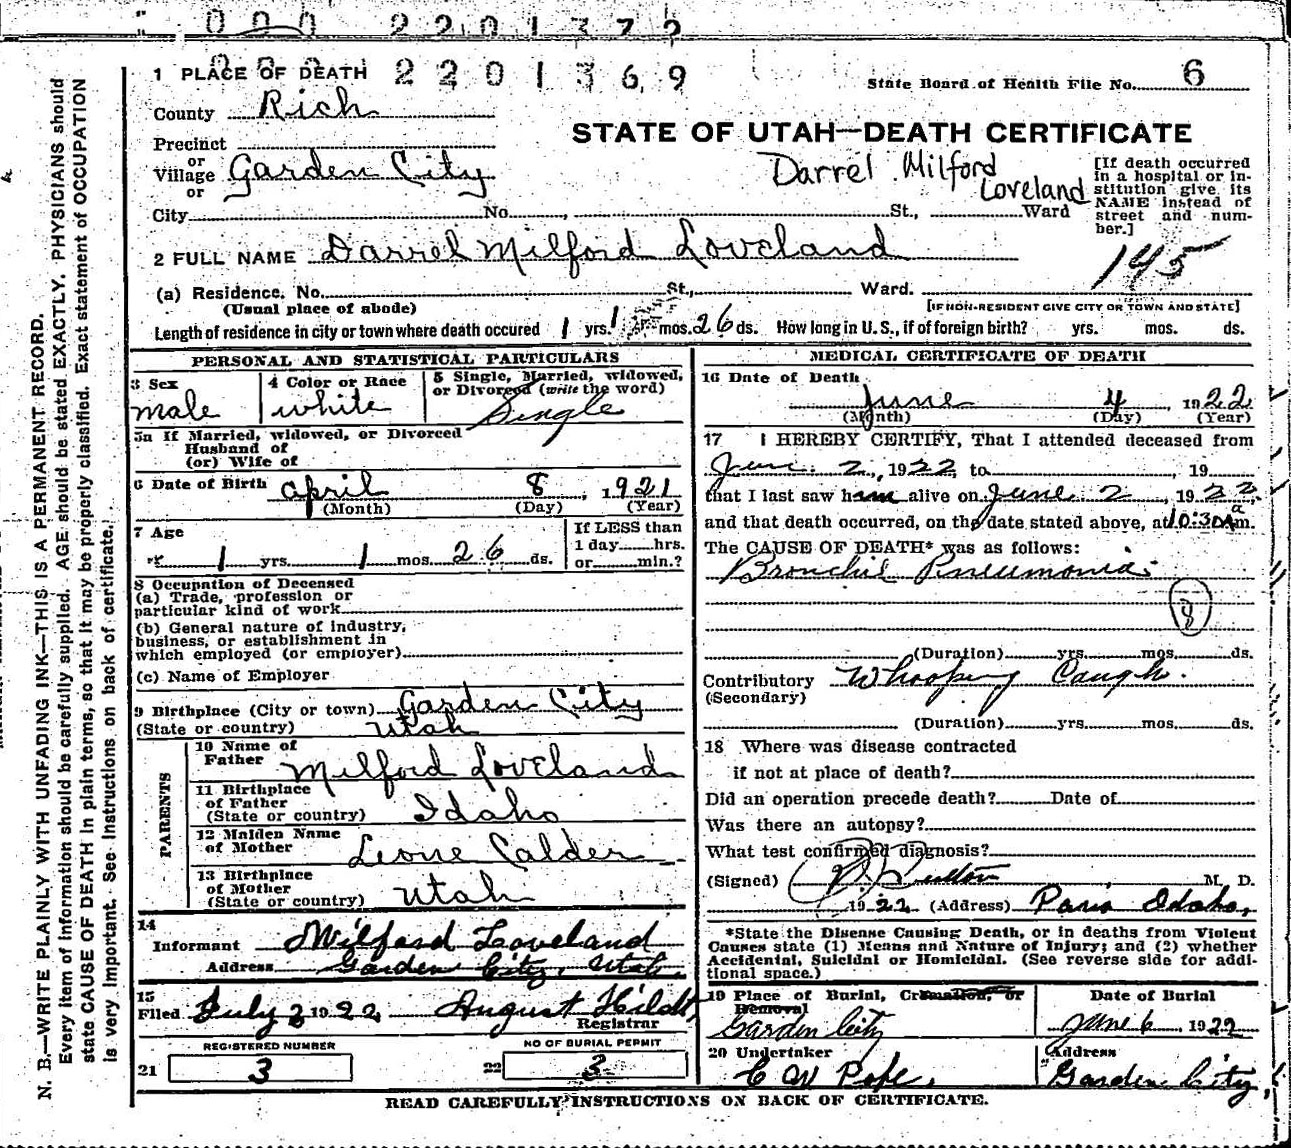 000 2201372
000 2201369
1 PLACE OF DEATH
State Board of Health File No. 6
County Rich
STATE OF UTAH—DEATH CERTIFICATE
Precinct
or
Village Garden City
or
Darrel Milford
Loveland
[If death occurred
in a hospital or in-
stitution give its
NAME instead of
street and num-
ber.]
City No. , St., Ward
2 FULL NAME Darrel Milford Loveland
145
(a) Residence. No. St., Ward.
(Usual place of abode)
[IF NON-RESIDENT GIVE CITY OR TOWN AND STATE]
Length of residence in city or town where death occured 1 yrs. 1 mos. 26 ds. How long in U. S., if of foreign birth? yrs. mos. ds.
PERSONAL AND STATISTICAL PARTICULARS
3 Sex
male
4 Color or Race
white
5 Single, Married, widowed,
or Divorced (write the word)
Single
5a If Married, widowed, or Divorced
Husband of
(or) Wife of
6 Date of Birth April 8, 1921
(Month) (Day) (Year)
7 Age
1 yrs. 1 mos. 26 ds.
If LESS than
1 day hrs.
or min.?
8 Occupation of Deceased
(a) Trade, profession or
particular kind of work
(b) General nature of industry,
business, or establishment in
which employed (or employer)
(c) Name of Employer
9 Birthplace (City or town) Garden City
(State or country) Utah
PARENTS
10 Name of
Father Milford Loveland
11 Birthplace
of Father
(State or country) Idaho
12 Maiden Name
of Mother Leone Calder
13 Birthplace
of Mother
(State or country) Utah
14
Informant Milford Loveland
Address Garden City, Utah.
15
Filed July 2 1922 August Hildt,
Registrar
REGISTERED NUMBER
21 3
NO OF BURIAL PERMIT
22 3
MEDICAL CERTIFICATE OF DEATH
16 Date of Death
June 4, 1922
(Month) (Day) (Year)
17 I HEREBY CERTIFY, That I attended deceased from
June 2, 1922 to , 19
that I last saw him alive on June 2, 1922
and that death occurred, on the date stated above, at 10:30 a m.
The CAUSE OF DEATH* was as follows:
Bronchil Pneumonia
8
(Duration) yrs. mos. ds.
Contributory Whooping Caugh.
(Secondary)
(Duration) yrs. mos. ds.
18 Where was disease contracted
if not at place of death?
Did an operation precede death? Date of
Was there an autopsy?
What test confirmed diagnosis?
(Signed) Sutton M. D.
1922 (Address) Paris Idaho,
*State the Disease Causing Death, or in deaths from Violent
Causes state (1) Means and Nature of Injury; and (2) whether
Accidental, Suicidal or Homicidal. (See reverse side for addi-
tional space.)
19 Place of Burial, Cremation, or
Removal
Garden City
Date of Burial
June 6 1922
20 Undertaker
C W Pope,
Address
Garden City,
READ CAREFULLY INSTRUCTIONS ON BACK OF CERTIFICATE.
N. B.—WRITE PLAINLY WITH UNFADING INK—THIS IS A PERMANENT RECORD.
Every item of information should be carefully supplied. AGE should be stated EXACTLY. PHYSICIANS should
state CAUSE OF DEATH in plain terms, so that it may be properly classified. Exact statement of OCCUPATION
is very important. See Instructions on back of certificate.